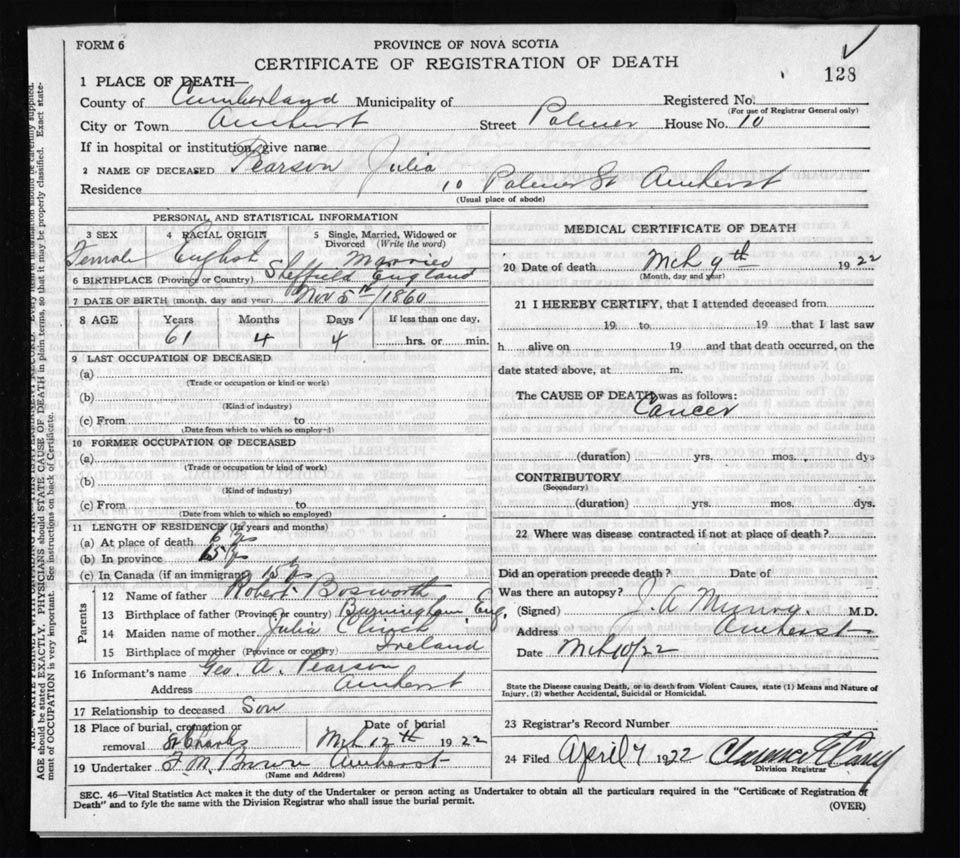 FORM 6
PROVINCE OF NOVA SCOTIA
CERTIFICATE OF REGISTRATION OF DEATH
128
1 PLACE OF DEATH—
County of Cumberland Municipality of Registered No.
(For use of Registrar General only)
City or Town Amherst Street Palmer House No. 10
If in hospital or institution, give name
2 NAME OF DECEASED Pearson Julia
Residence 10 Palmer St Amherst
(Usual place of abode)
PERSONAL AND STATISTICAL INFORMATION
3 SEX 4 RACIAL ORIGIN 5 Single, Married, Widowed or Divorced (Write the word)
Female English Married
6 BIRTHPLACE (Province or Country) Sheffield England
7 DATE OF BIRTH (month, day and year) Nov 5th/1860
8 AGE Years Months Days If less than one day,
61 4 4 hrs. or min.
9 LAST OCCUPATION OF DECEASED
(a)
(Trade or occupation or kind or work)
(b)
(Kind of industry)
(c) From to
(Date from which to which so employ-1)
10 FORMER OCCUPATION OF DECEASED
(a)
(Trade or occupation or kind of work)
(b)
(Kind of industry)
(c) From to
(Date from which to which so employed)
11 LENGTH OF RESIDENCE (In years and months)
(a) At place of death 6 yrs
(b) In province 15 yrs
(c) In Canada (if an immigrant) 15 yrs
Parents
12 Name of father Robert Bosworth
13 Birthplace of father (Province or country) Burmingham Eng,
14 Maiden name of mother Julia Clinch
15 Birthplace of mother (Province or country) Ireland
16 Informant's name Geo. A. Pearson
Address Amherst
17 Relationship to deceased Son
18 Place of burial, cremation or removal St Charles Date of burial Mch 12th 1922
19 Undertaker F. M. Brown Amherst
(Name and Address)
MEDICAL CERTIFICATE OF DEATH
20 Date of death Mch 9th 1922
(Month, day and year)
21 I HEREBY CERTIFY, that I attended deceased from
19 to 19 that I last saw
h alive on 19 and that death occurred, on the
date stated above, at m.
The CAUSE OF DEATH was as follows:
Cancer
(duration) yrs. mos. dys
CONTRIBUTORY
(Secondary)
(duration) yrs. mos. dys.
22 Where was disease contracted if not at place of death?
Did an operation precede death? Date of
Was there an autopsy?
(Signed) J. A Munroy. M.D.
Address Amherst
Date Mch 10/22
State the Disease causing Death, or in death from Violent Causes, state (1) Means and Nature of
Injury, (2) whether Accidental, Suicidal or Homicidal.
23 Registrar's Record Number
24 Filed April 7 1922 Clarence E Casey
Division Registrar
SEC. 46—Vital Statistics Act makes it the duty of the Undertaker or person acting as Undertaker to obtain all the particulars required in the "Certificate of Registration of
Death" and to fyle the same with the Division Registrar who shall issue the burial permit.
(OVER)
AGE should be stated EXACTLY. PHYSICIANS should STATE CAUSE OF DEATH in plain terms, so that it may be properly classified. Exact state-
ment of OCCUPATION is very important. See instructions on back of Certificate.